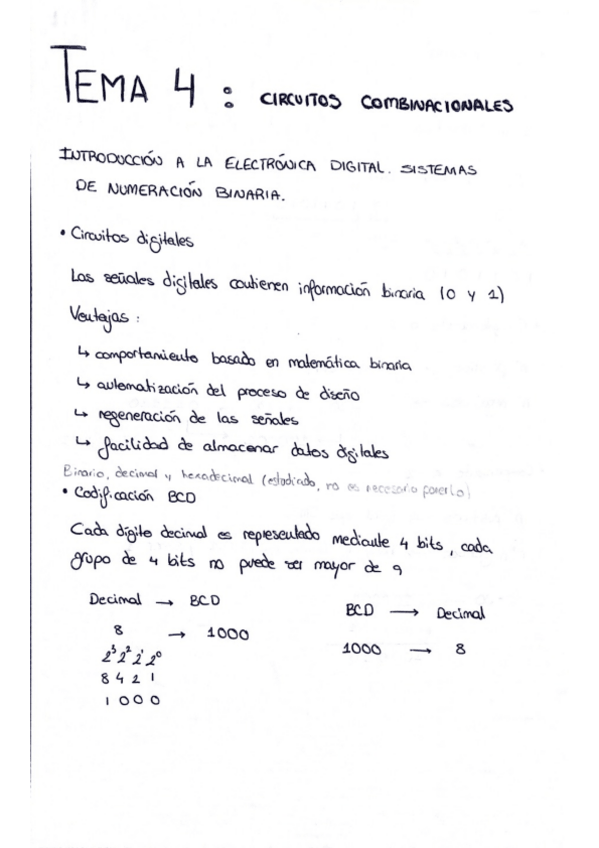 TEMA 4 : CIRCUITOS COMBINACIONALES
INTRODUCCIÓN A LA ELECTRÓNICA DIGITAL. SISTEMAS
DE NUMERACIÓN BINARIA.
• Circuitos digitales
Las señales digitales contienen información binaria (0 y 1)
Ventajas :
↳ comportamiento basado en matemática binaria
↳ automatización del proceso de diseño
↳ regeneración de las señales
↳ facilidad de almacenar datos digitales
Binario, decimal y hexadecimal (estudiado, no es necesario ponerlo)
• Codificación BCD
Cada dígito decimal es representado mediante 4 bits, cada
grupo de 4 bits no puede ser mayor de 9
Decimal → BCD
8 → 1000
2³ 2² 2¹ 2⁰
8 4 2 1
1 0 0 0
BCD → Decimal
1000 → 8